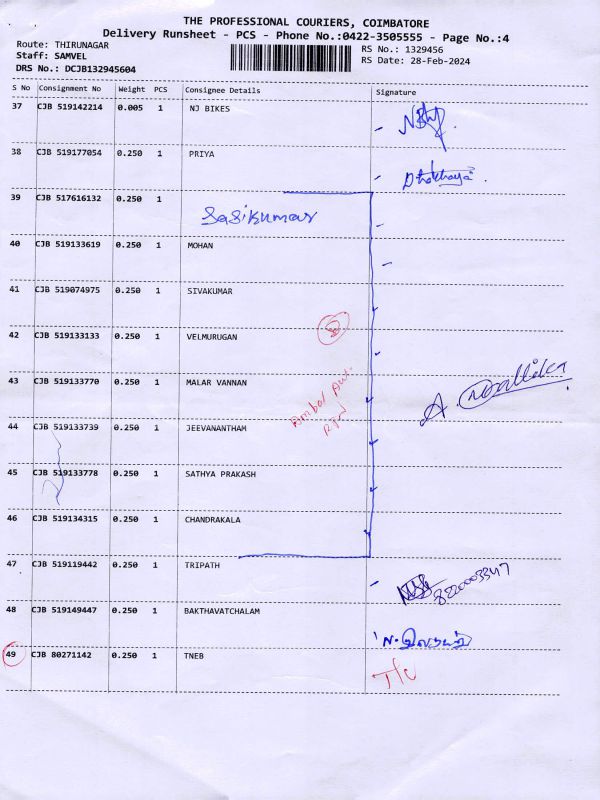 THE PROFESSIONAL COURIERS, COIMBATORE
Delivery Runsheet - PCS - Phone No.:0422-3505555 - Page No.:4
Route: THIRUNAGAR
Staff: SAMVEL
DRS No.: DCJB132945604
RS No.: 1329456
RS Date: 28-Feb-2024
S No Consignment No Weight PCS Consignee Details Signature
37 CJB 519142214 0.005 1 NJ BIKES
38 CJB 519177054 0.250 1 PRIYA
39 CJB 517616132 0.250 1 Sasikumar
40 CJB 519133619 0.250 1 MOHAN
41 CJB 519074975 0.250 1 SIVAKUMAR
42 CJB 519133133 0.250 1 VELMURUGAN
43 CJB 519133770 0.250 1 MALAR VANNAN
44 CJB 519133739 0.250 1 JEEVANANTHAM
45 CJB 519133778 0.250 1 SATHYA PRAKASH
46 CJB 519134315 0.250 1 CHANDRAKALA
47 CJB 519119442 0.250 1 TRIPATH 8220003347
48 CJB 519149447 0.250 1 BAKTHAVATCHALAM
49 CJB 80271142 0.250 1 TNEB T/C